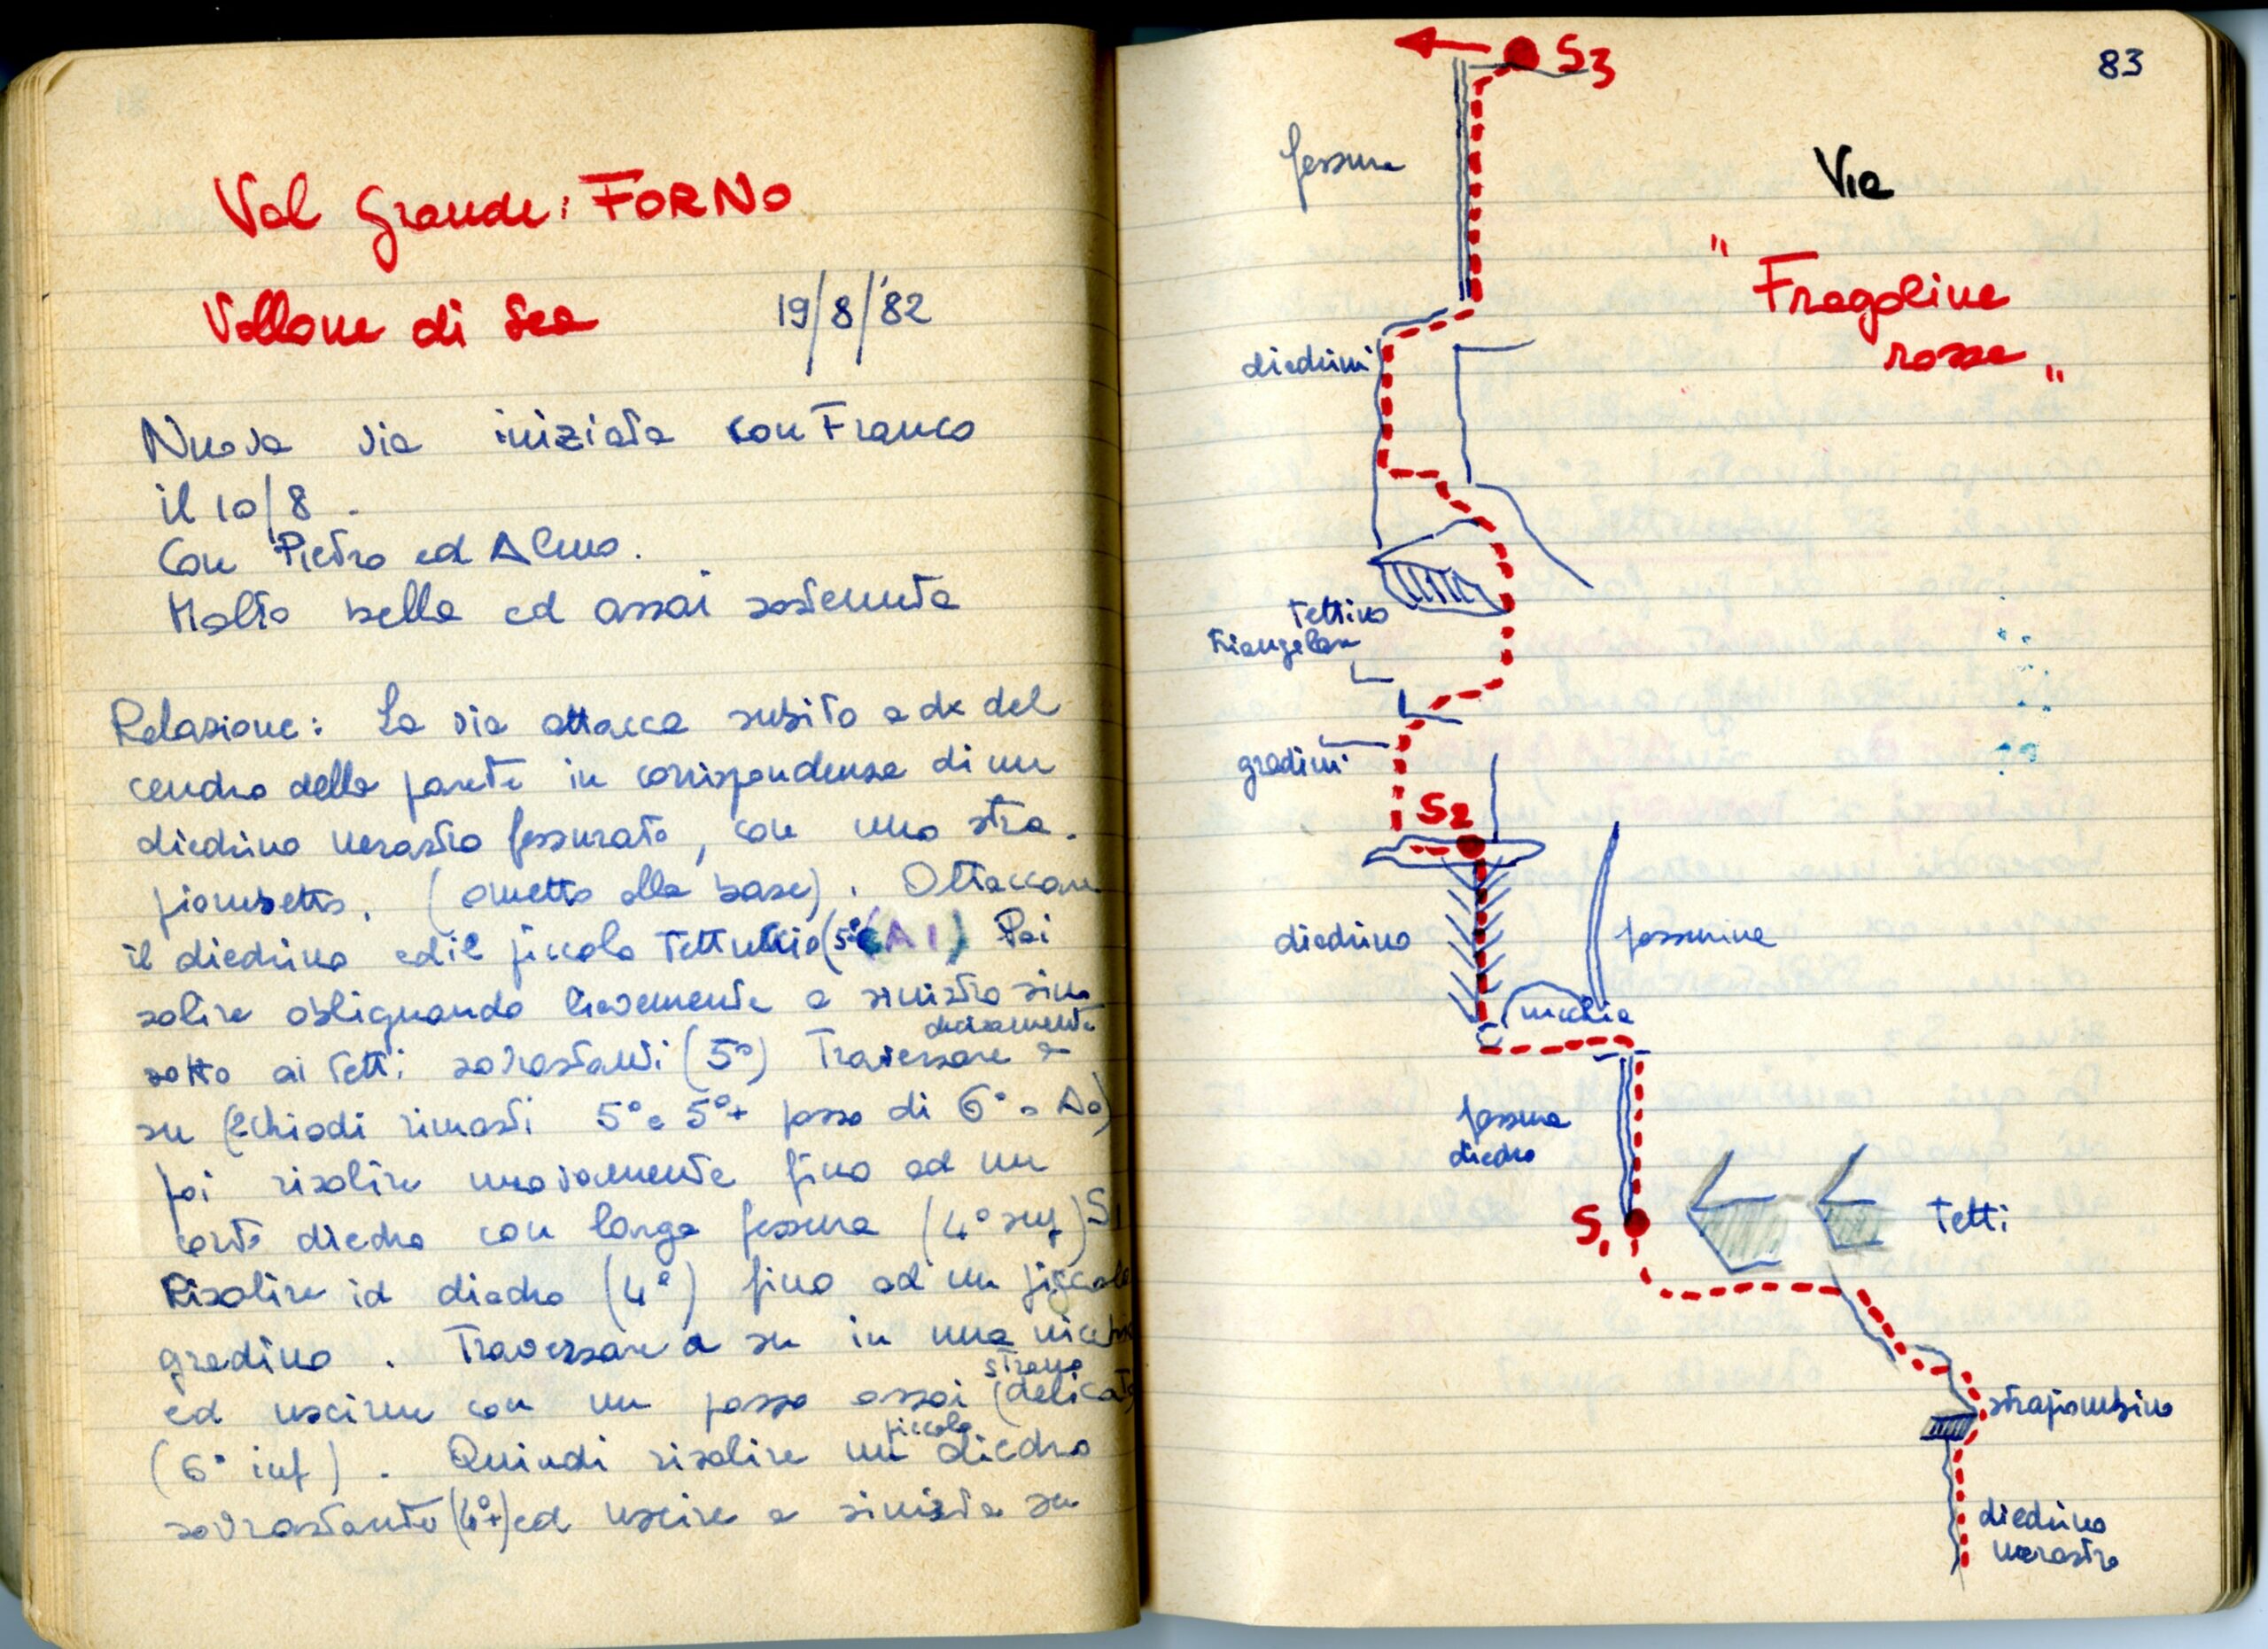 Val Grande: FORNO
Vallone di Sea 19/8/'82
Nuova via iniziata con Franco
il 10/8 -
Con Pietro ed Almo.
Molto bella ed assai sostenuta
Relazione: La via attacca subito a dx del
centro della parete in corrispondenza di un
diedrino nerastro fessurato, con uno stra-
piombetto. (ometto alla base). Attaccare
il diedrino ed il piccolo tettuccio (5° (A1) Poi
salire obliquando lievemente a sinistra sino
sotto ai tetti sovrastanti (5°) Traversare decisamente a
sn (2 chiodi rimasti 5° e 5°+ passo di 6° o A0)
poi risalire nuovamente fino ad un
corto diedro con larga fessura (4° sup) S1
Risalire id diedro (4°) fino ad un piccolo
gradino. Traversare a sn in una nicchia
ed uscirne con un passo assai strano (delicato
(6° inf). Quindi risalire un piccolo diedro
sovrastante (4°+) ed uscire a sinista su
83
S3
fessura
Via
"Fragoline
rosse"
diedrini
tettino
triangolare
gradini
S2
diedrino
fessurine
nicchia
fessura
diedro
S1
Tetti
strapiombino
diedrino
nerastro